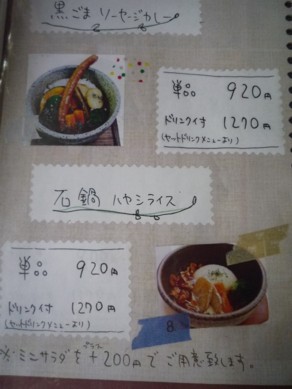 黒ごま ソーセージカレー
単品 920円
ドリンク付 1270円
(セットドリンクメニューより)
石鍋 ハヤシライス
単品 920円
ドリンク付 1270円
(セットドリンクメニューより)
※ミニサラダを+200円でご用意致します。